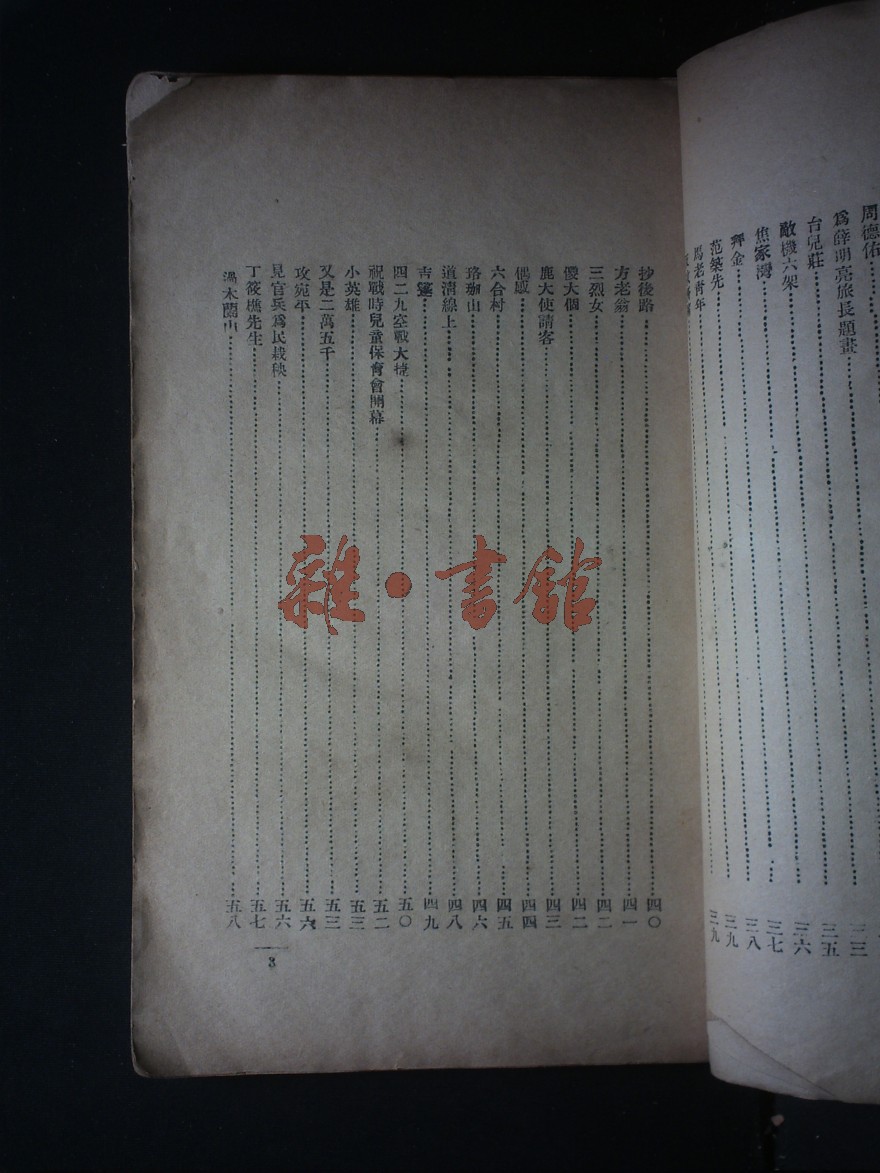 周德佑
為薛明亮旅長題畫……三三
台兒莊……三五
敵機六架……三六
焦家灣……三七
拜金……三八
范築先……三九
馬老青年……三九
抄後路……四〇
方老翁……四一
三烈女……四二
傻大個……四二
鹿大使請客……四三
偶感……四四
六合村……四五
珞珈山……四六
道清線上……四八
吉……四九
四二九空戰大捷……五〇
祝戰時兒童保育會開幕……五二
小英雄……五三
又是二萬五千……五三
攻宛平……五六
見官兵為民栽秧……五六
丁筱橋先生……五七
湯木關山……五八
3
雜·書館